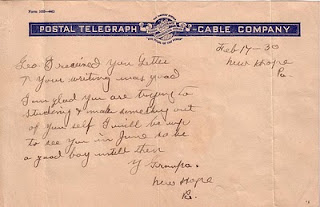 POSTAL TELEGRAPH - CABLE COMPANY
Feb 17-30
New Hope
Pa.
Geo I received your Letter
& your writing was good
I am glad you are trying to
studing & make something out
of your self I will be up
to see you in June so be
a good boy untill then
Y Granpa.
New Hope
Pa.